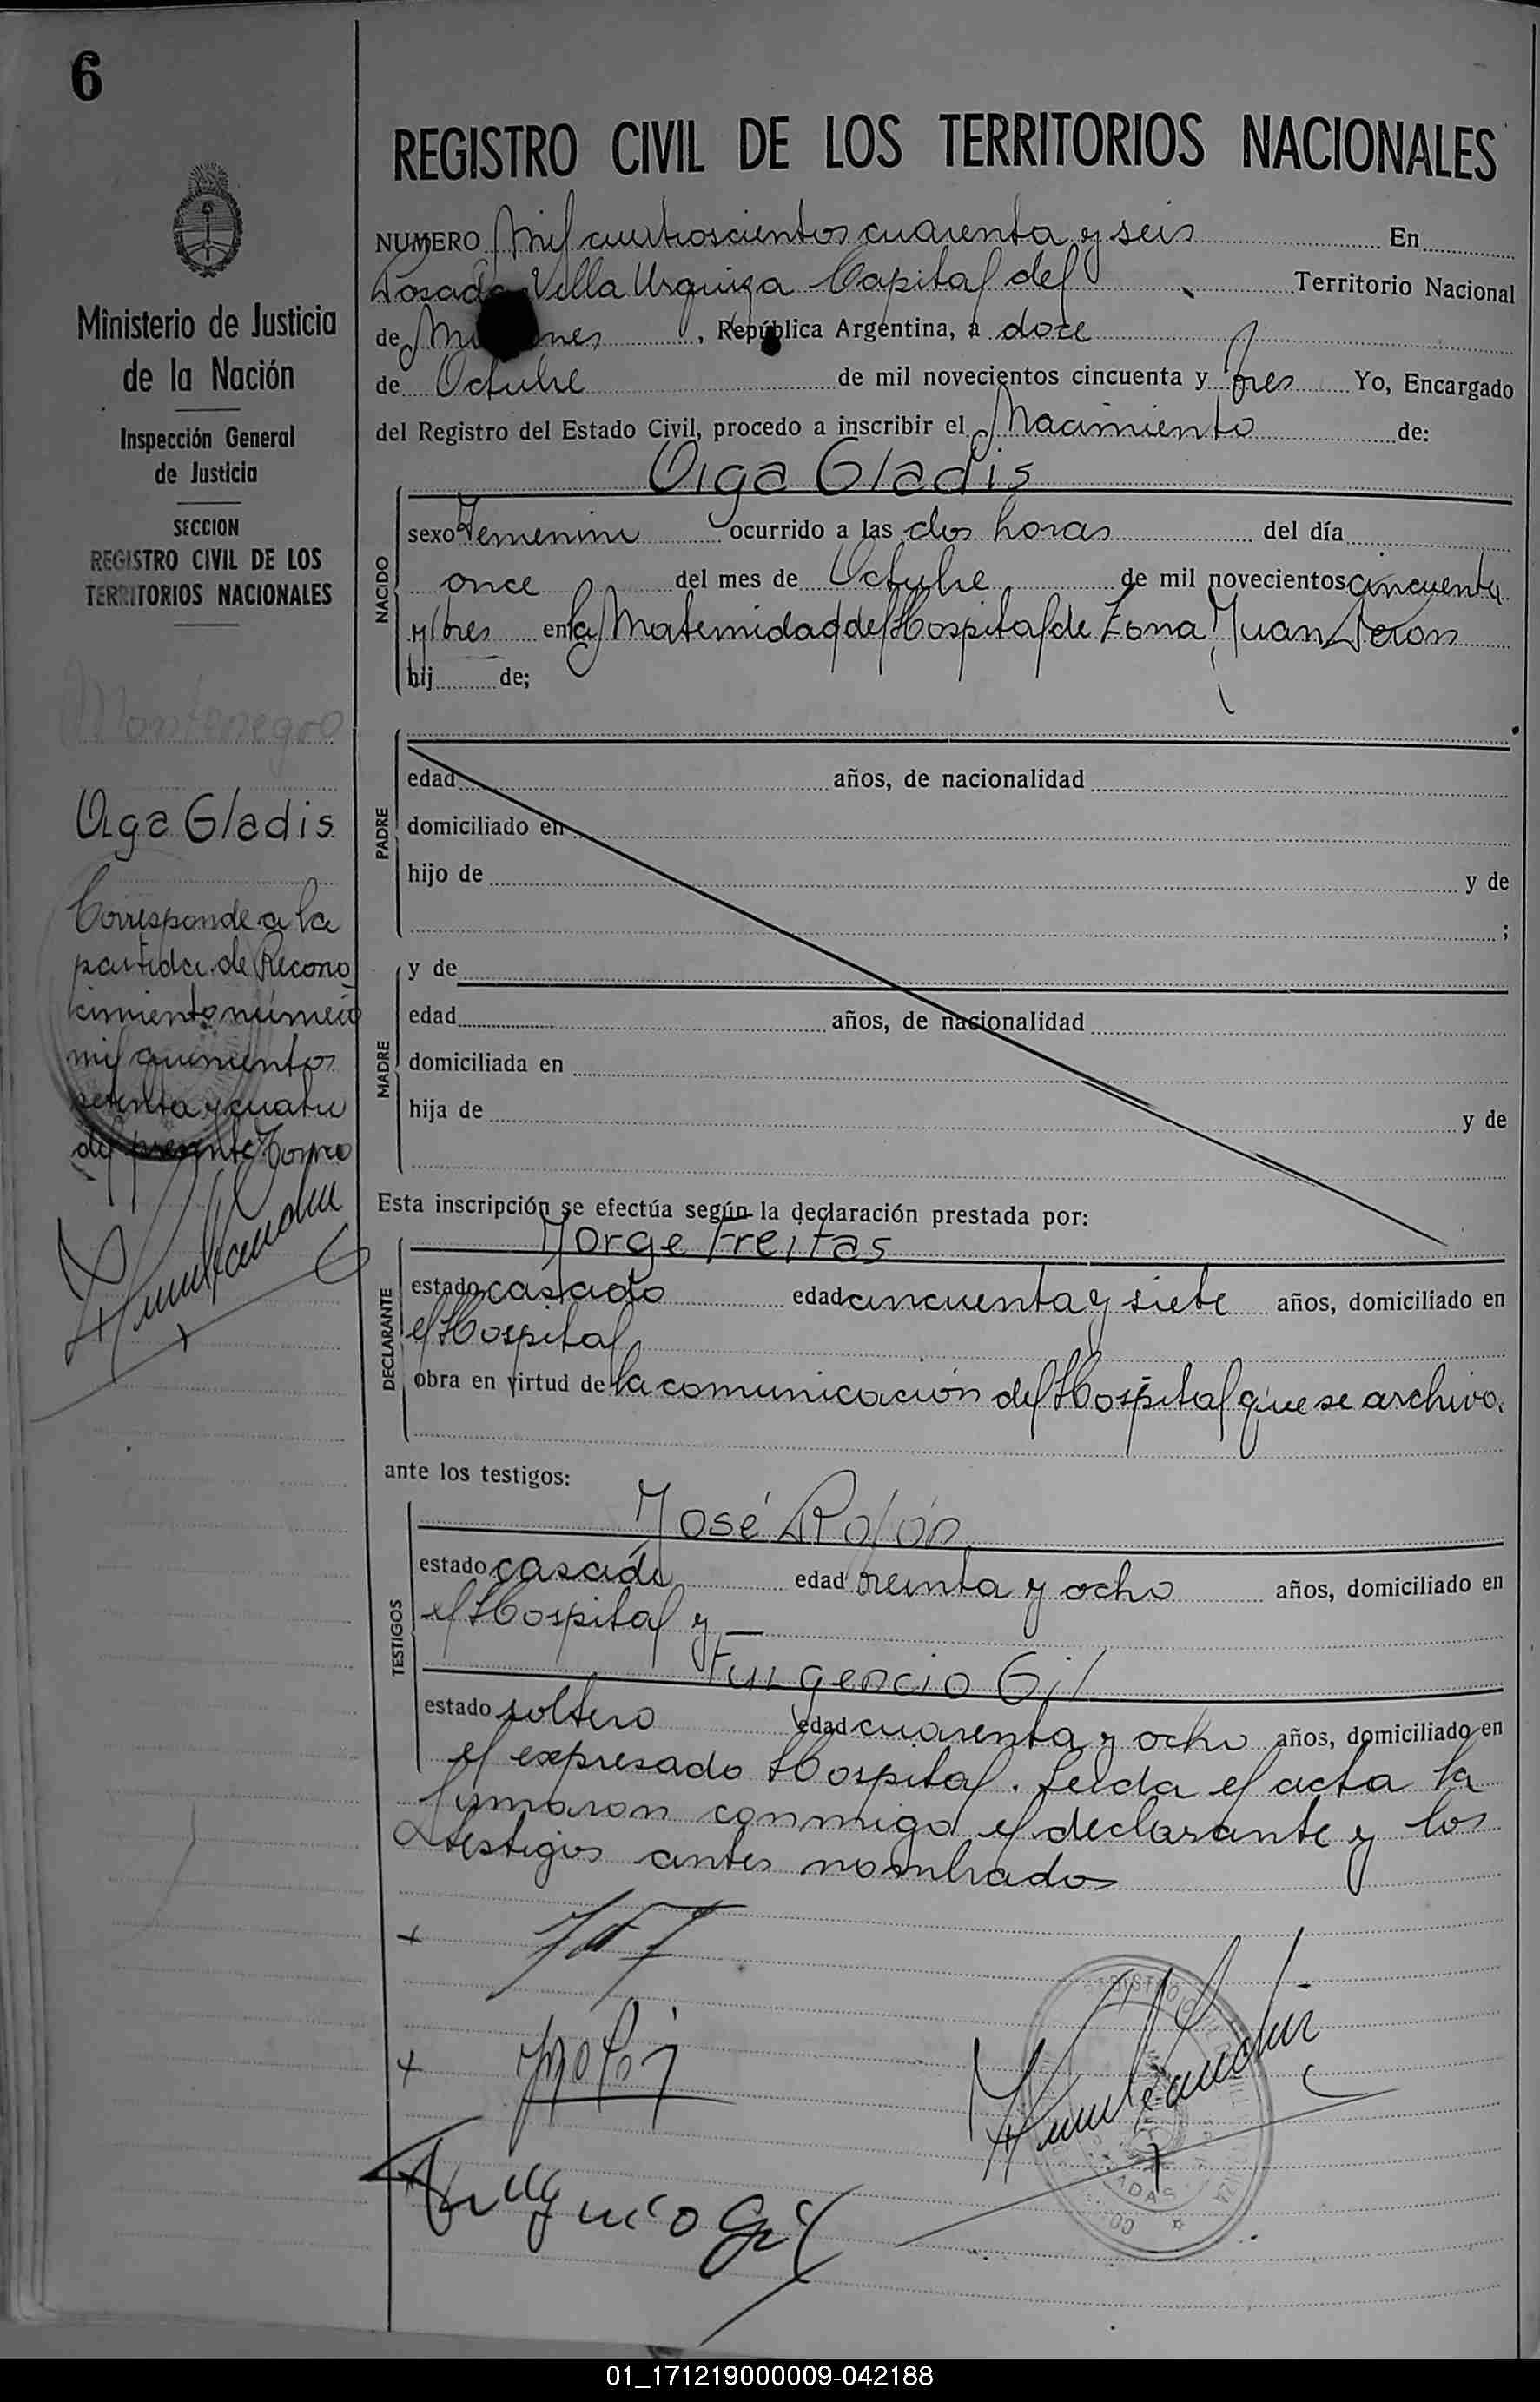 6
REGISTRO CIVIL DE LOS TERRITORIOS NACIONALES
NUMERO Mil cuatroscientos cuarenta y seis En
Posadas Villa Urquiza Capital del Territorio Nacional
de Misiones, República Argentina, a doce
de Octubre de mil novecientos cincuenta y tres Yo, Encargado
del Registro del Estado Civil, procedo a inscribir el Nacimiento de:
Olga Gladis
NACIDO
sexo Femenino ocurrido a las dos horas del día
once del mes de Octubre de mil novecientos cincuenta
y tres en la Maternidad del Hospital de Zona Juan Peron
hij de;
PADRE
edad años, de nacionalidad
domiciliado en
hijo de y de
;
MADRE
y de
edad años, de nacionalidad
domiciliada en
hija de y de
Esta inscripción se efectúa según la declaración prestada por:
Jorge Freitas
DECLARANTE
estado casado edad cincuenta y siete años, domiciliado en
el Hospital
obra en virtud de la comunicación del Hospital que se archiva.
ante los testigos:
José Rolón
TESTIGOS
estado casado edad treinta y ocho años, domiciliado en
el Hospital y —
Fulgencio Gil
estado soltero edad cuarenta y ocho años, domiciliado en
el expresado Hospital. Leida el acta la
firmaron conmigo el declarante y los
testigos antes nombrados
Ministerio de Justicia
de la Nación
Inspección General
de Justicia
SECCION
REGISTRO CIVIL DE LOS
TERRITORIOS NACIONALES
Montenegro
Olga Gladis
Corresponde a la
partida de Recono
cimiento número
mil quinientos
setenta y cuatro
del presente Tomo
01_171219000009-042188